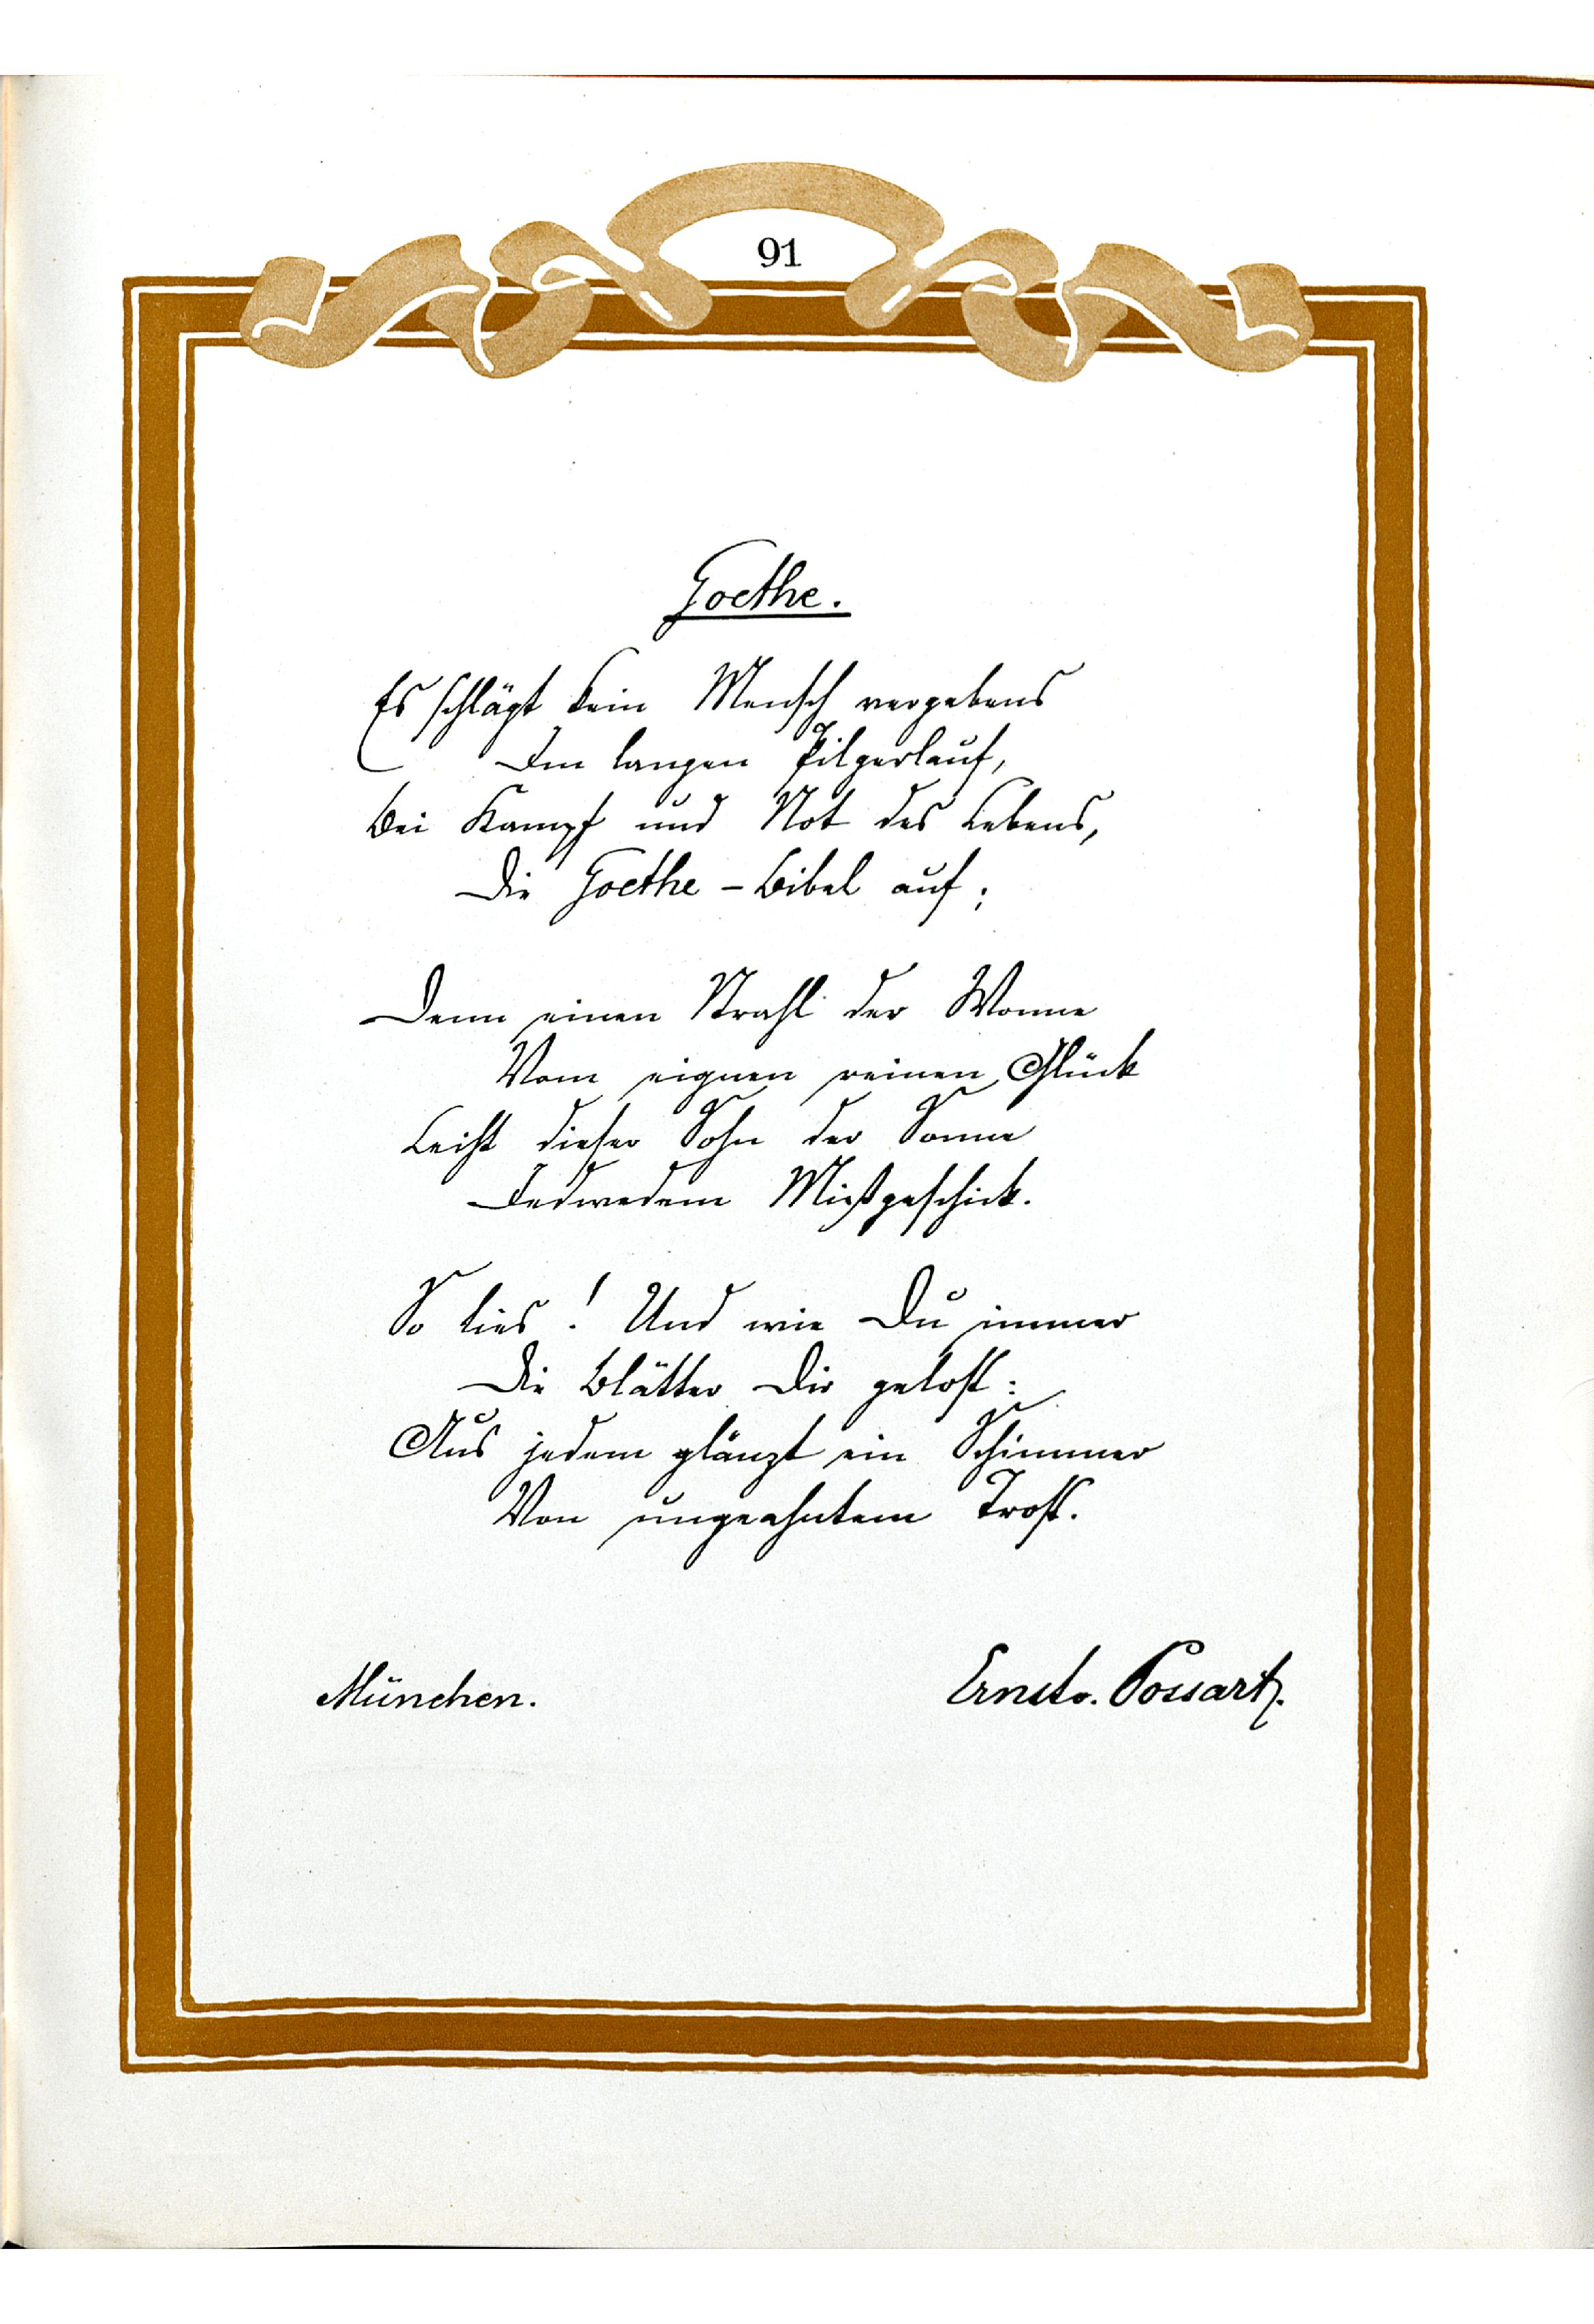 91
Goethe.
Es schlägt kein Mensch vergebens
Im langen Pilgerlauf,
Bei Kampf und Not des Lebens,
Die Goethe-Bibel auf;
Denn einen Strahl der Wonne
Vom eignen reinen Glück
Leiht dieser Sohn der Sonne
Jedwedem Mißgeschick.
So lies! Und wie Du immer
Die Blätter Dir gelost:
Aus jedem glänzt ein Schimmer
Von ungeahntem Trost.
München.
Ernst v. Possart.